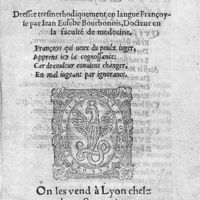 Dressée tresmethodiquement en langue Françoy-
se par Iean Eusebe Bourbonois, Docteur en
la faculté de medecine.
Françoys qui veux du poulx iuger,
Apprens icy la cognoissance:
Car de couleur conuient changer,
En mal iugeant par ignorance.
On les vend à Lyon chelz